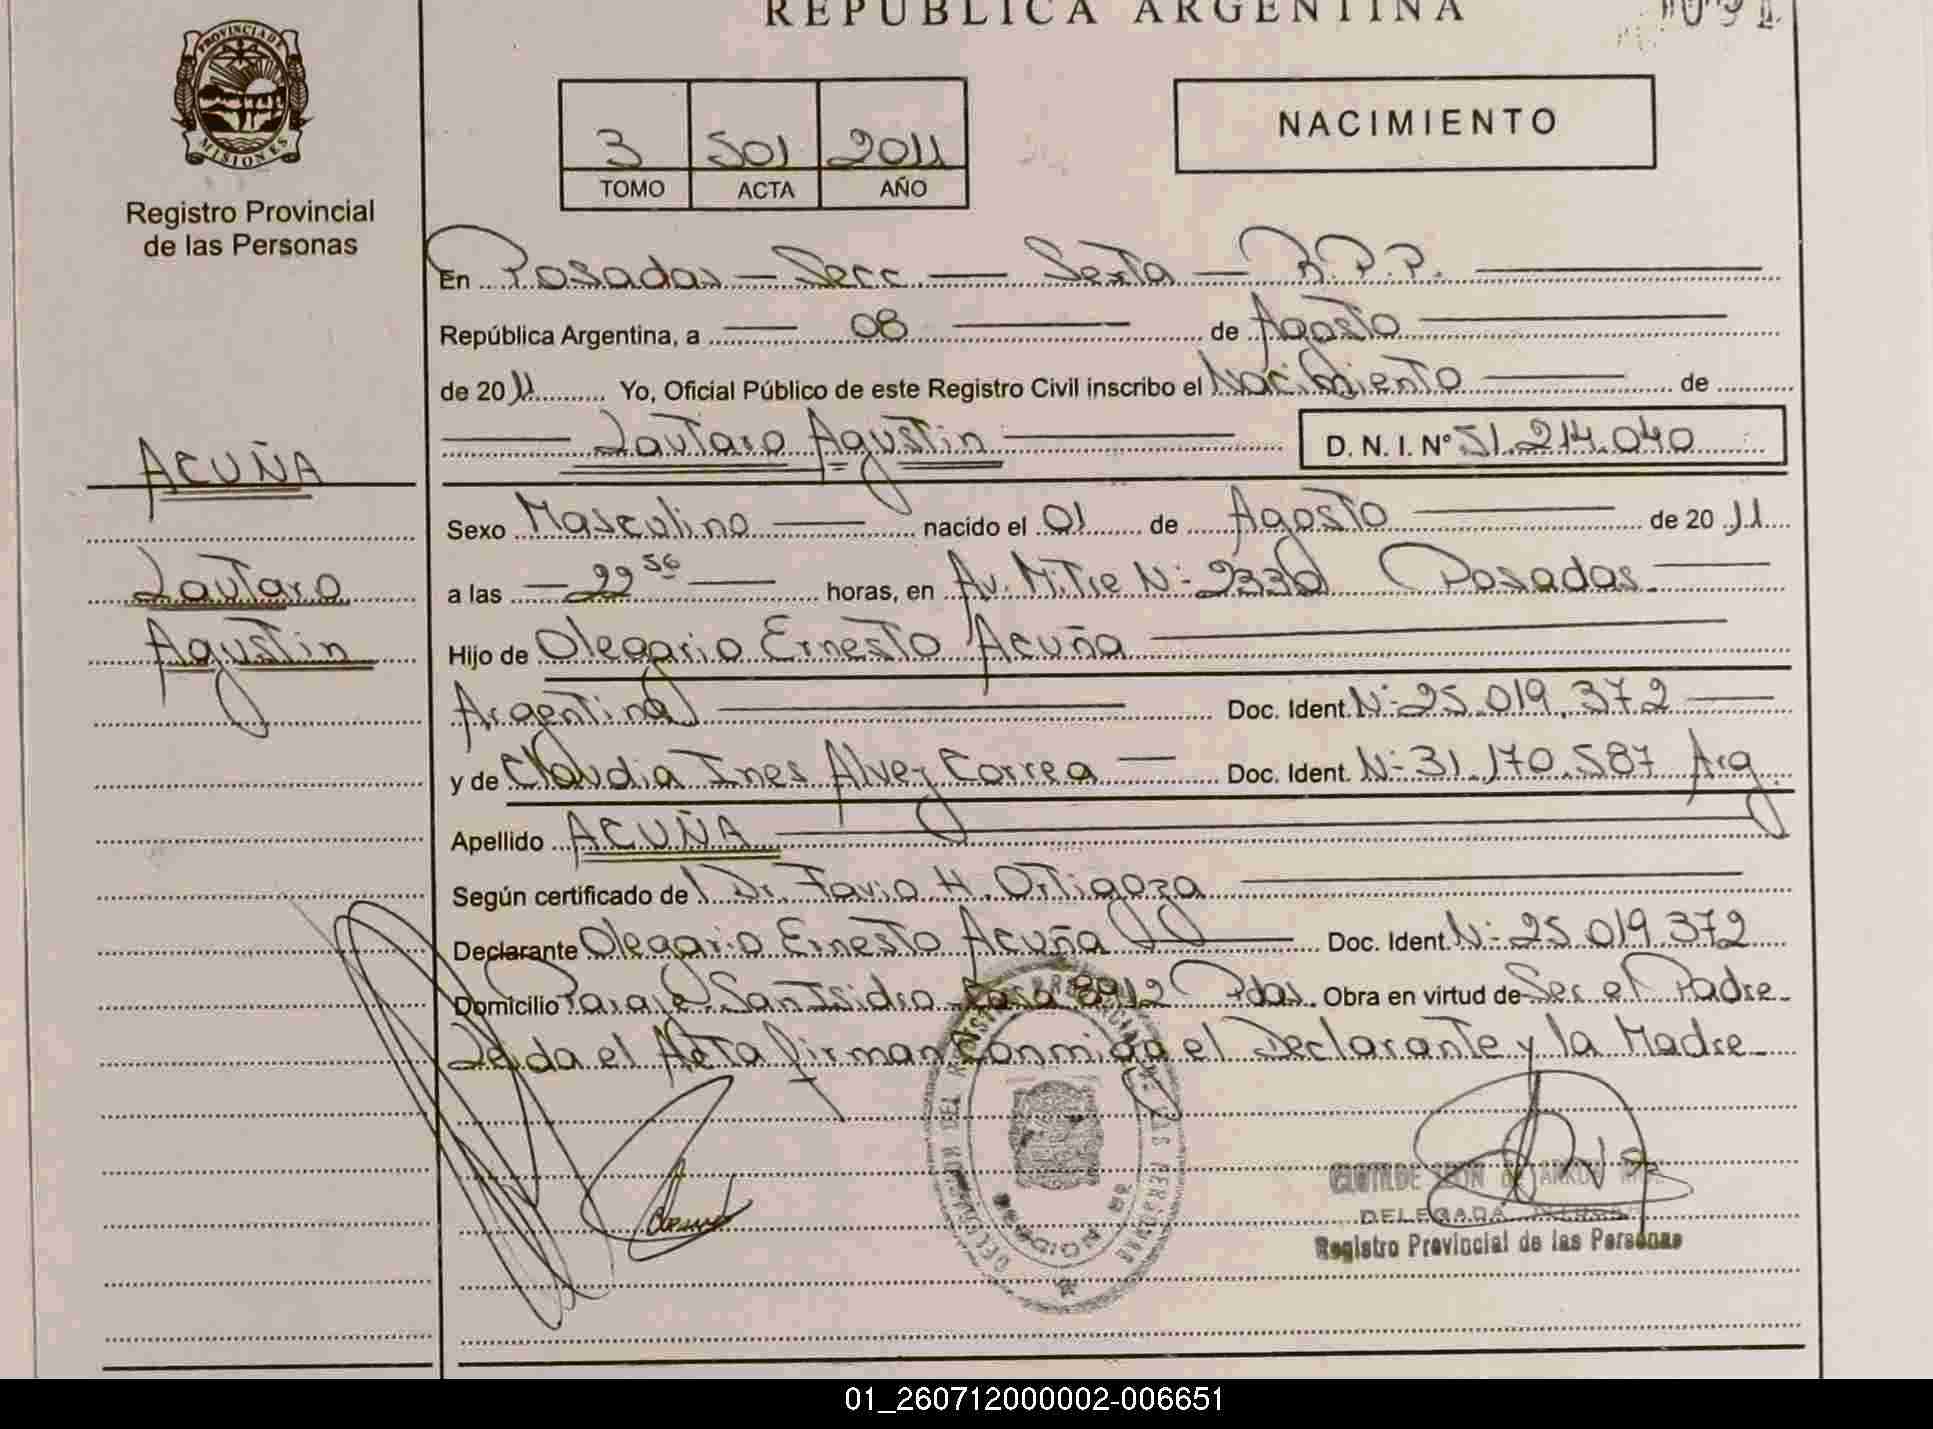 REPUBLICA ARGENTINA
PROVINCIA DE
MISIONES
Registro Provincial
de las Personas
3 501 2011
TOMO ACTA AÑO
NACIMIENTO
En Posadas - Secc. - Sexta - R.P.P.
República Argentina, a 08 de Agosto
de 2011 Yo, Oficial Público de este Registro Civil inscribo el Nacimiento de
Lautaro Agustin D. N. I. N° 51.214.040
ACUÑA
Lautaro
Agustin
Sexo Masculino nacido el 01 de Agosto de 2011
a las 22 56 horas, en Av. Mitre N: Posadas
Hijo de Olegario Ernesto Acuña
Argentina Doc. Ident. N: 25.019.372
y de Claudia Ines Alvez Correa Doc. Ident. N: 31.170.587 Arg.
Apellido ACUÑA
Según certificado de Dr. Favio H. Ortigoza
Declarante Olegario Ernesto Acuña Doc. Ident. N: 25.019.372
Domicilio Paraje San Isidro Casa 8912 Pdas. Obra en virtud de Ser el Padre
Leida el Acta firman conmigo el Declarante y la Madre
DELEGADA
Registro Provincial de las Personas
01_260712000002-006651